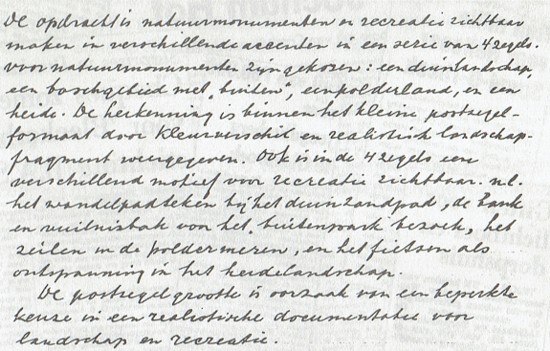 De opdracht is natuurmonumenten en recreatie zichtbaar
maken in verschillende accenten in een serie van 4 zegels.
Voor natuurmonumenten zijn gekozen: een duinlandschap,
een boschgebied met „buiten", een polderland, en een
heide. De herkenning is binnen het kleine postzegel-
formaat door kleurverschil en realistisch landschap-
fragment weergegeven. Ook is in de 4 zegels een
verschillend motief voor recreatie zichtbaar. nl.
het wandelpadteken bij het duinzandpad, de bank
en vuilnisbak van het buitenpark bezoek, het
zeilen in de poldermeren, en het fietsen als
ontspanning in het heidelandschap.
De postzegelgrootte is oorzaak van een beperkte
keuze in een realistische documentatie voor
landschap en recreatie.